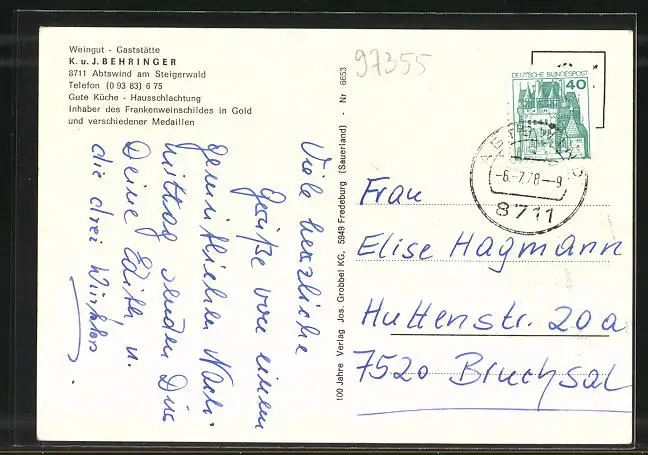 Weingut - Gaststätte
K. u. J. BEHRINGER
8711 Abtswind am Steigerwald
Telefon (0 93 83) 6 75
Gute Küche - Hausschlachtung
Inhaber des Frankenweinschildes in Gold
und verschiedener Medaillen
97355
DEUTSCHE BUNDESPOST
40
ABTSWIND
-6.-7.78-9
8711
100 Jahre Verlag Jos. Grobbel KG, 5949 Fredeburg (Sauerland) - Nr 6653
Viele herzliche
Grüße von einem
gemütlichen Nach-
mittag senden Dir
Deine Edith u.
die drei
Frau
Elise Hagmann
Huttenstr. 20a
7520 Bruchsal